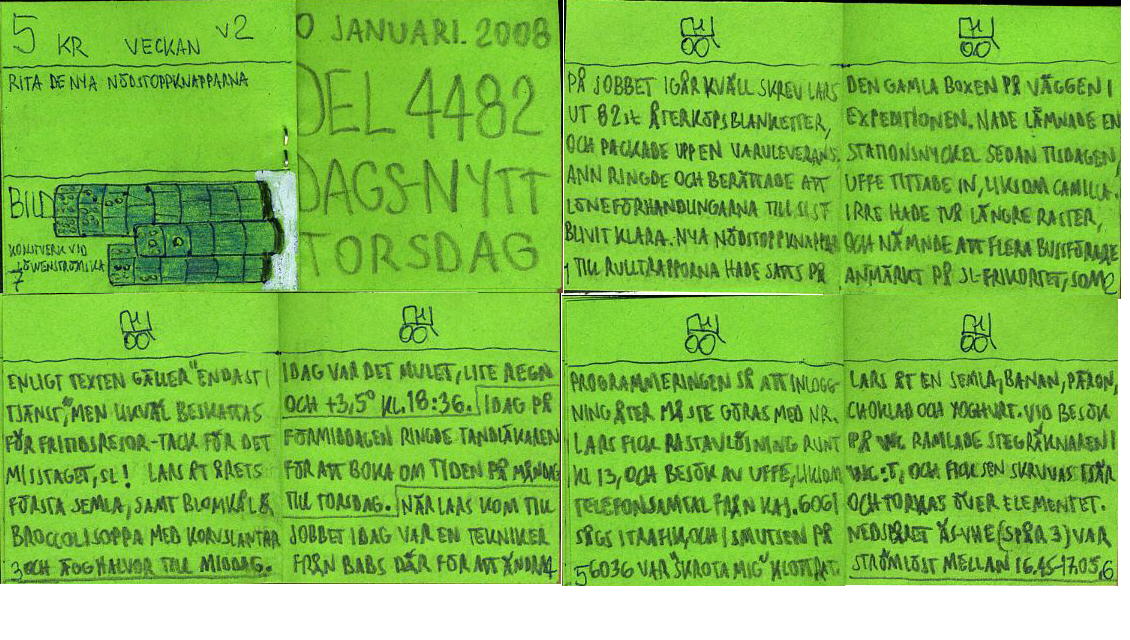 5 KR VECKAN V2
RITA DE NYA NÖDSTOPPKNAPPARNA
BILD
KONSTVERK VID
LÖWENSTRÖMSKA
7
0 JANUARI. 2008
DEL 4482
DAGS-NYTT
TORSDAG
PÅ JOBBET IGÅR KVÄLL SKREV LARS
UT 82st ÅTERKÖPSBLANKETTER,
OCH PACKADE UPP EN VARULEVERANS.
ANN RINGDE OCH BERÄTTADE ATT
LÖNEFÖRHANDLINGARNA TILL SIST
BLIVIT KLARA. NYA NÖDSTOPPKNAPPAR
1 TILL RULLTRAPPORNA HADE SATTS PÅ
DEN GAMLA BOXEN PÅ VÄGGEN I
EXPEDITIONEN. NADE LÄMNADE EN
STATIONSNYCKEL SEDAN TISDAGEN,
UFFE TITTADE IN, LIKSOM CAMILLA.
IRRE HADE TVÅ LÄNGRE RASTER,
OCH NÄMNDE ATT FLERA BUSSFÖRARE
ANMÄRKT PÅ SL-FRIKORTET, SOM 2
ENLIGT TEXTEN GÄLLER "ENDAST I
TJÄNST," MEN LIKVÄL BESKATTAS
FÖR FRITIDSRESOR-TACK FÖR DET
MISSTAGET, SL! LARS ÅT ÅRETS
FÖRSTA SEMLA, SAMT BLOMKÅL &
BROCCOLISOPPA MED KORVSLANTAR
3 OCH ÄGGHALVOR TILL MIDDAG.
IDAG VAR DET MULET, LITE REGN
OCH +3,5° KL. 18:36. IDAG PÅ
FÖRMIDDAGEN RINGDE TANDLÄKAREN
FÖR ATT BOKA OM TIDEN PÅ MÅNDAG
TILL TORSDAG. NÄR LARS KOM TILL
JOBBET IDAG VAR EN TEKNIKER
FRÅN BABS DÄR FÖR ATT ÄNDRA 4
PROGRAMMERINGEN SÅ ATT INLOGG-
NING ÅTER MÅSTE GÖRAS MED NR.
LARS FICK RASTAVLÖSNING RUNT
KL 13, OCH BESÖK AV UFFE, LIKSOM
TELEFONSAMTAL FRÅN KAJ. 6061
SÅGS I TRAFIK, OCH I SMUTSEN PÅ
5 6036 VAR "SKROTA MIG" KLOTTRAT.
LARS ÅT EN SEMLA, BANAN, PÄRON,
CHOKLAD OCH YOGHURT. VID BESÖK
PÅ WC RAMLADE STEGRÄKNAREN I
WC:T, OCH FICK SEN SKRUVAS ISÄR
OCH TORKAS ÖVER ELEMENTET.
NEDSPÅRET ÄS-VHE (SPÅR 3) VAR
STRÖMLÖST MELLAN 16.45-17.05. 6